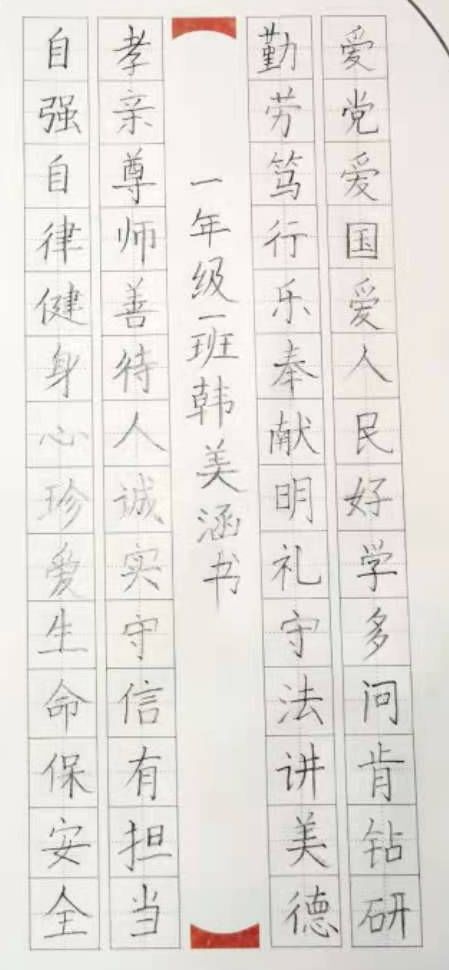 爱党爱国爱人民好学多问肯钻研
勤劳笃行乐奉献明礼守法讲美德
一年级一班韩美涵书
孝亲尊师善待人诚实守信有担当
自强自律健身心珍爱生命保安全